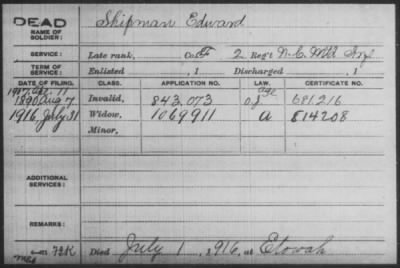 DEAD
NAME OF SOLDIER: Shipman Edward
SERVICE: Late rank, Co. F 2 Reg't N.C. Mtd Inf
TERM OF SERVICE: Enlisted , 1 Discharged , 1
DATE OF FILING. CLASS. APPLICATION NO. LAW. CERTIFICATE NO.
1907 Apr. 11 age
1890 Aug 7 Invalid, 843,073 681216
1916, July 31 Widow, 1069911 a 814208
Minor,
ADDITIONAL SERVICES:
REMARKS:
72K Died July 1, 1916, at Etowah